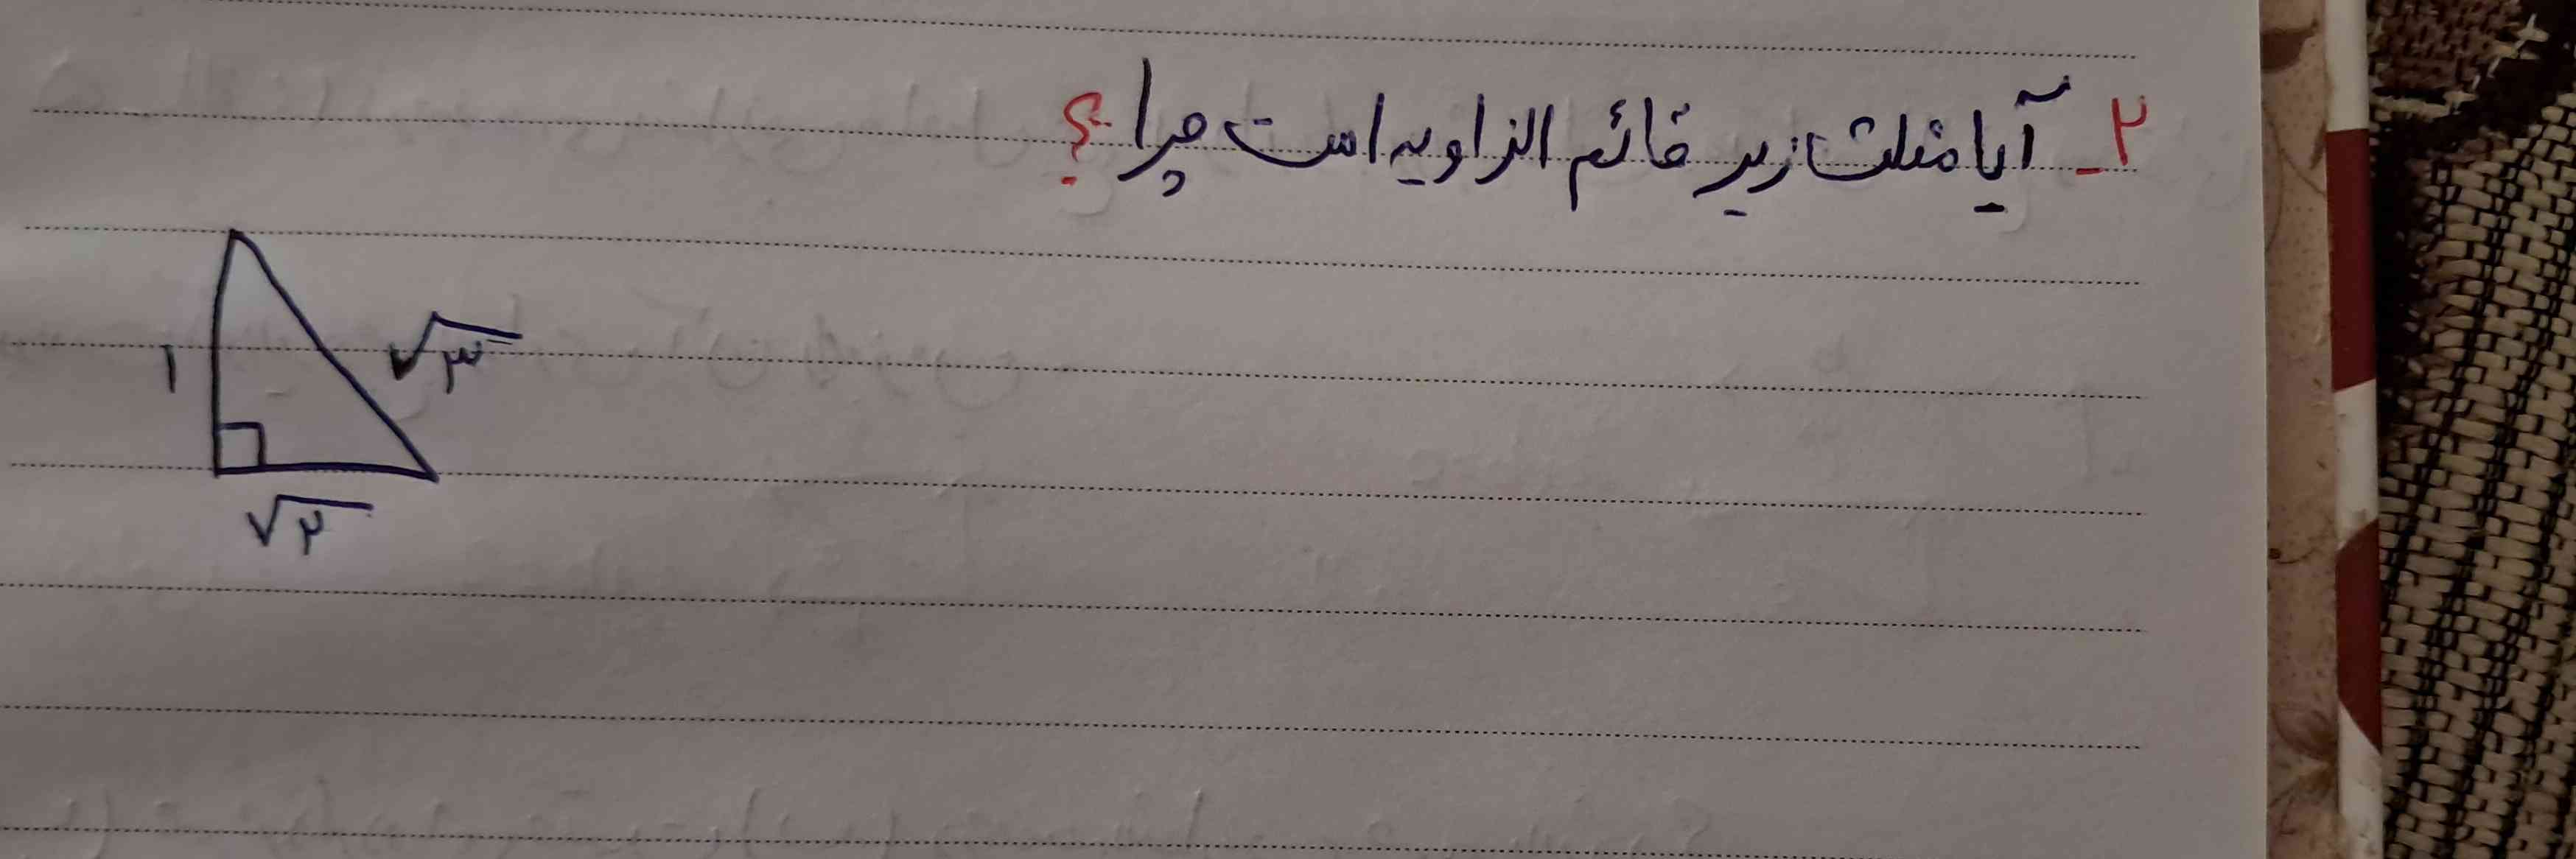 ۲ـ آیا مثلث زیر قائم الزاویه است چرا؟
۱
√۳
√۲